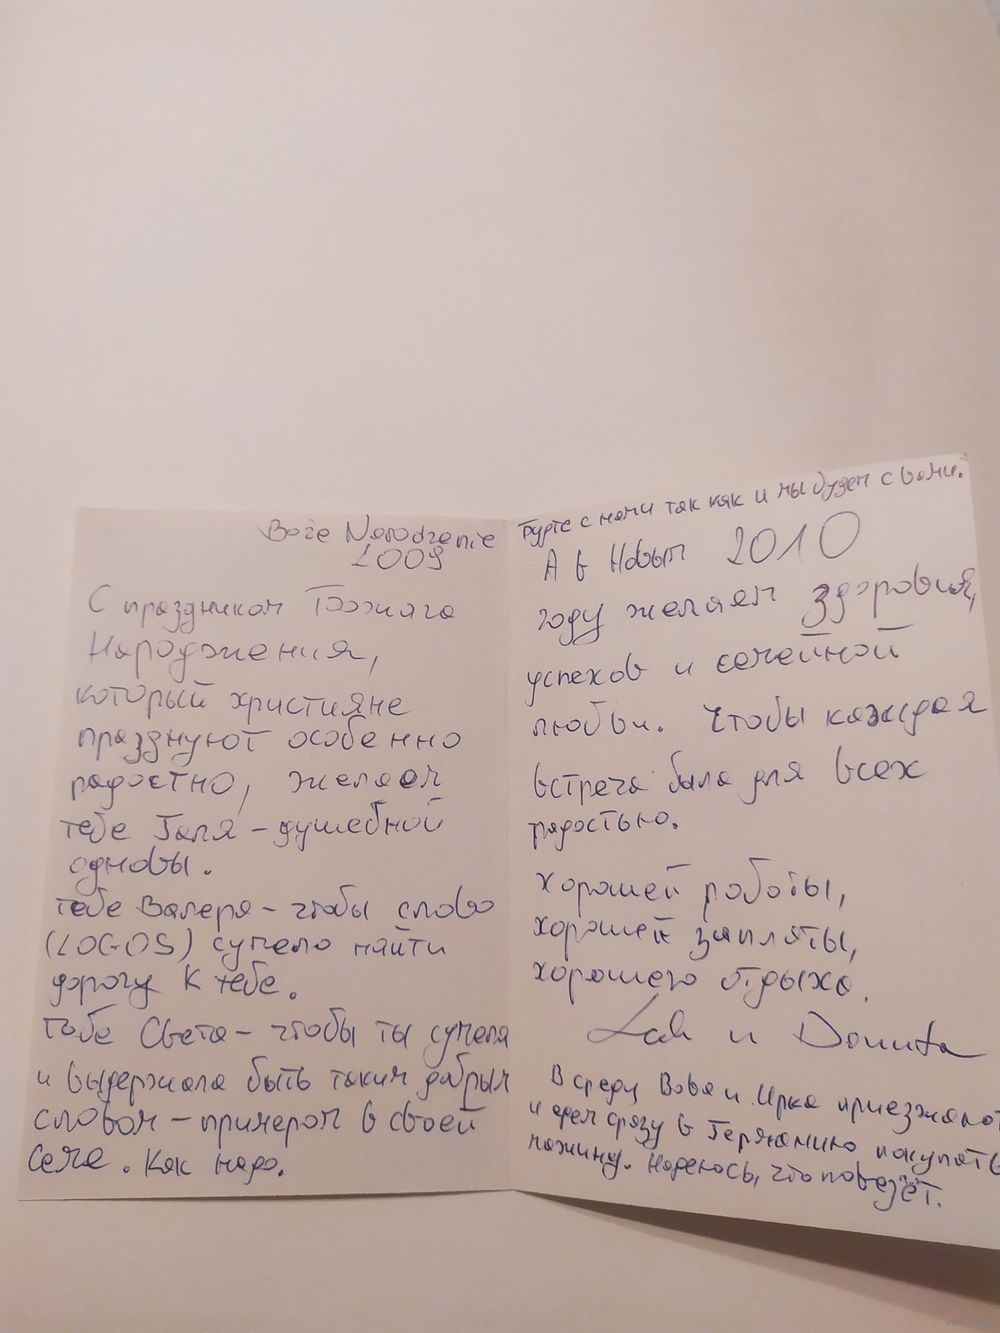 Boże Narodzenie
2009
С праздником Божяга
Народжения,
который християне
празднуют особенно
радостно, желаем
тебе Галя - душевной
одновы.
тебе Валеря - чтобы слово
(LOGOS) сумело найти
дорогу к тебе.
тебе Света - чтобы ты сумела
и выдержала быть таким добрым
словом - примером в своей
семе. Как надо.
Будте с нами так как и мы будем с вами.
А в Новым 2010
году желаем здоровия,
успехов и семейной
любви. Чтобы каждая
встреча была для всех
радостью.
хорошей работы,
хорошей заплаты,
хорошего отдыха.
и Danuta
В среду Вова и Ирка приезжают
и едем сразу в Германию покупать
машину. Надеюсь, что повезёт.